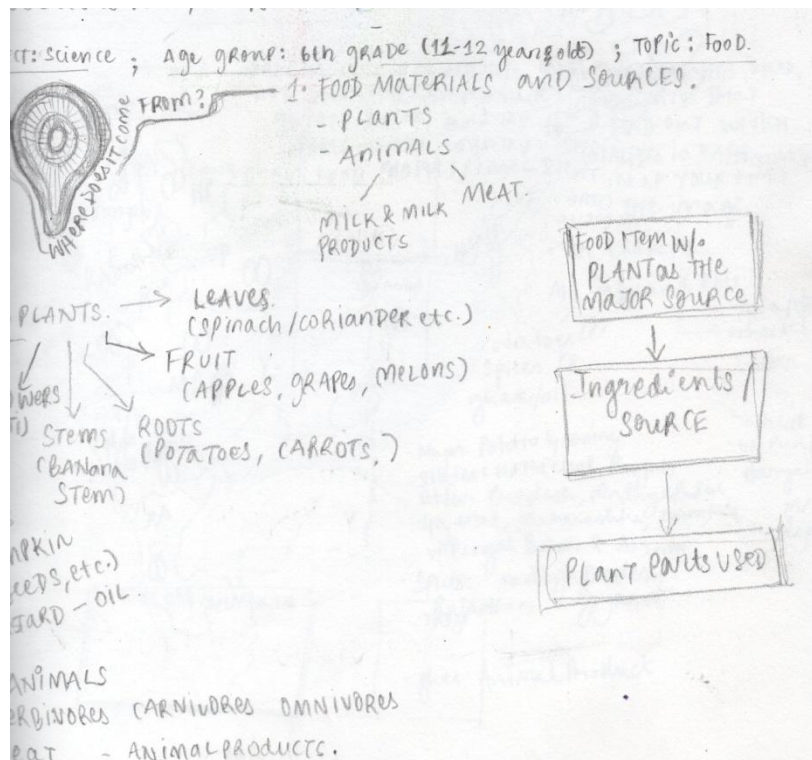 CT: Science ; Age group: 6th GRADE (11-12 year olds) ; TOPIC: FOOD.
WHERE DOES IT COME FROM?
1. FOOD MATERIALS AND SOURCES.
- PLANTS
- ANIMALS
MILK & MILK PRODUCTS
MEAT.
PLANTS
LEAVES.
(SPINACH/CORIANDER etc.)
FRUIT
(APPLES, GRAPES, MELONS)
ROOTS
(POTATOES, CARROTS, )
STEMS
(BANANA
STEM)
WERS
MPKIN
EEDS, etc.)
TARD - OIL
ANIMALS
ERBIVORES CARNIVORES OMNIVORES
EAT - ANIMAL PRODUCTS.
FOOD ITEM W/.
PLANT AS THE
MAJOR SOURCE
Ingredients /
SOURCE
PLANT PARTS USED